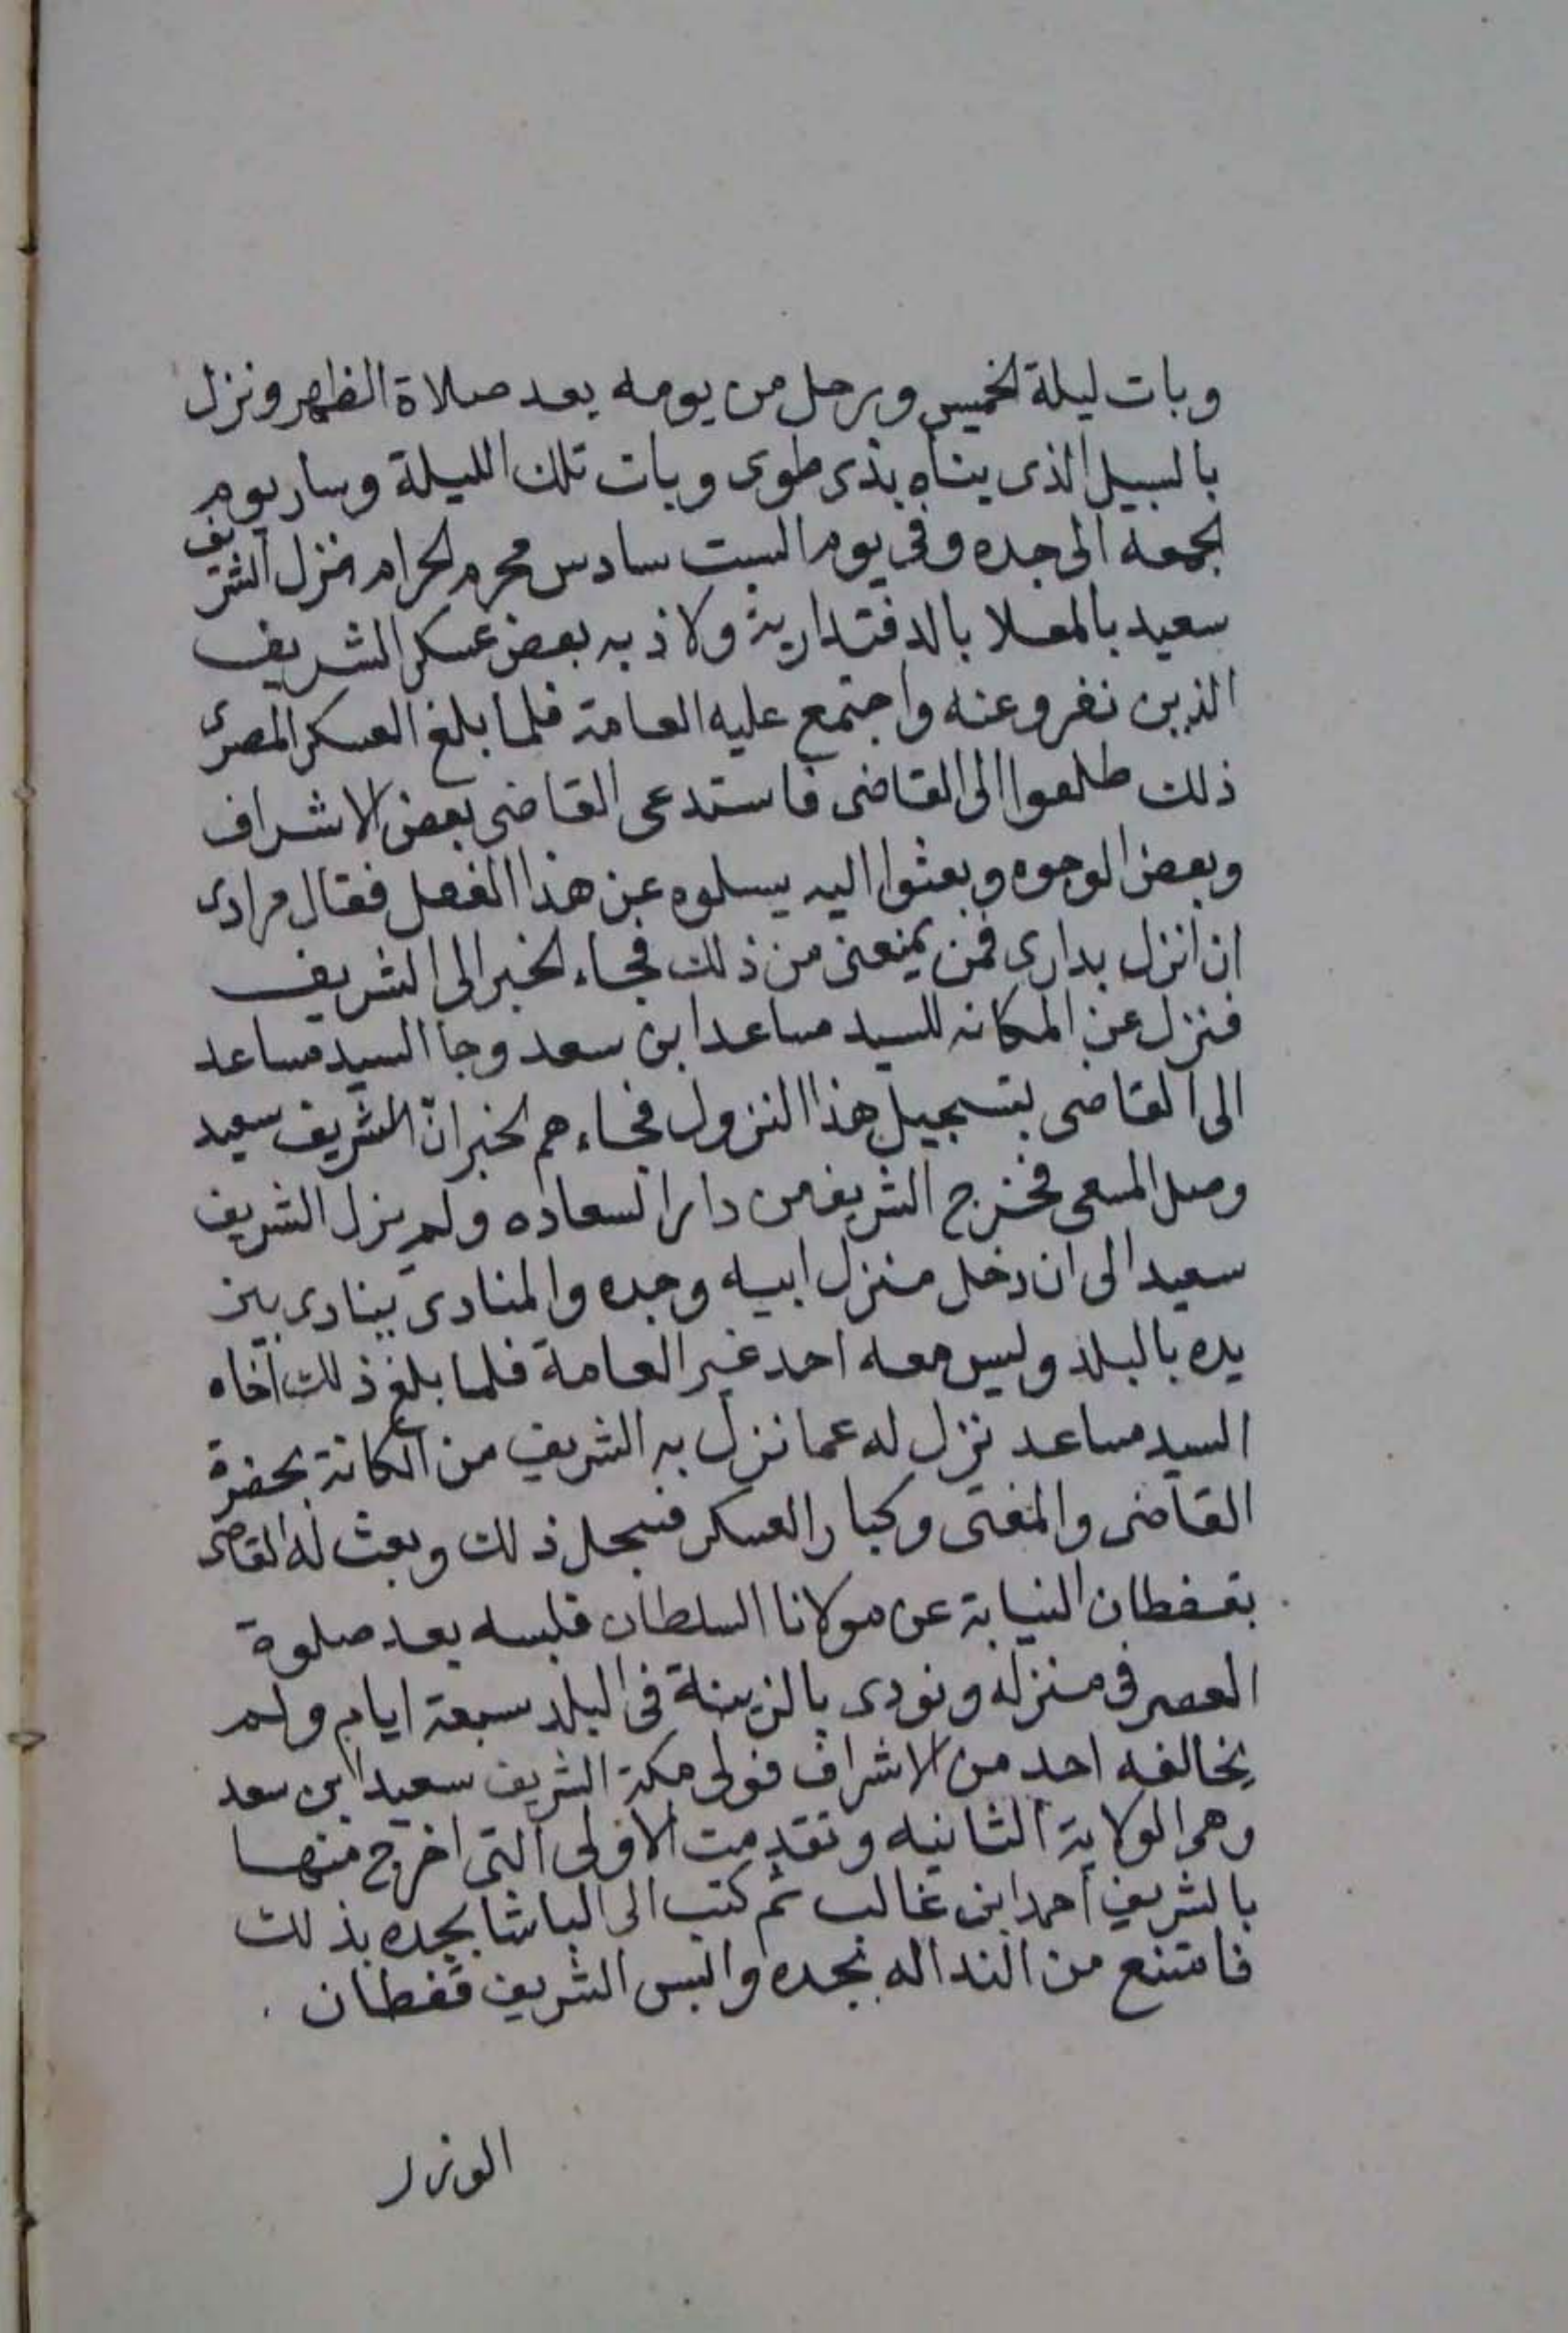 وبات ليلة الخميس ورحل من يومه بعد صلاة الظهر ونزل
بالسبيل الذى بناه بذى طوى وبات تلك الليلة وسار يوم
الجمعه الى جده وفى يوم السبت سادس محرم الحرام نزل الشريف
سعيد بالمعلا بالدفتدارية ولاذ به بعض عسكر الشريف
الذين نفروعنه واجتمع عليه العامة فلما بلغ العسكر المصرى
ذلك طلعوا الى القاضى فاستدعى القاضى بعض الاشراف
وبعض الوجوه وبعثوا اليه يسلوه عن هذا الفعل فقال مرادى
ان انزل بدارى فمن يمنعنى من ذلك فجاء الخبر الى الشريف
فنزل عن المكانه للسيد مساعد ابن سعد وجا السيد مساعد
الى القاضى بتسجيل هذا النزول فجاءهم الخبر ان الشريف سعيد
وصل المسعى فخرج الشريف من دار السعاده ولم يزل الشريف
سعيد الى ان دخل منزل ابيه وجده والمنادى ينادى بين
يده بالبلد وليس معه احد غير العامة فلما بلغ ذلك اخاه
السيد مساعد نزل له عما نزل به الشريف من المكانة بحضرة
القاضى والمفتى وكبار العسكر فسجل ذلك وبعث له القاضى
بقفطان النيابة عن مولانا السلطان فلبسه بعد صلوة
العصر فى منزله ونودى بالزينة فى البلد سبعة ايام ولم
يخالفه احد من الاشراف فولى مكة الشريف سعيد ابن سعد
وهى الولاية الثانيه وتقدمت الاولى التى اخرج منها
بالشريف احمد ابن غالب ثم كتب الى الباشا بجده بذلك
فامتنع من الندا له بجده والبس الشريف قفطان
الوزر